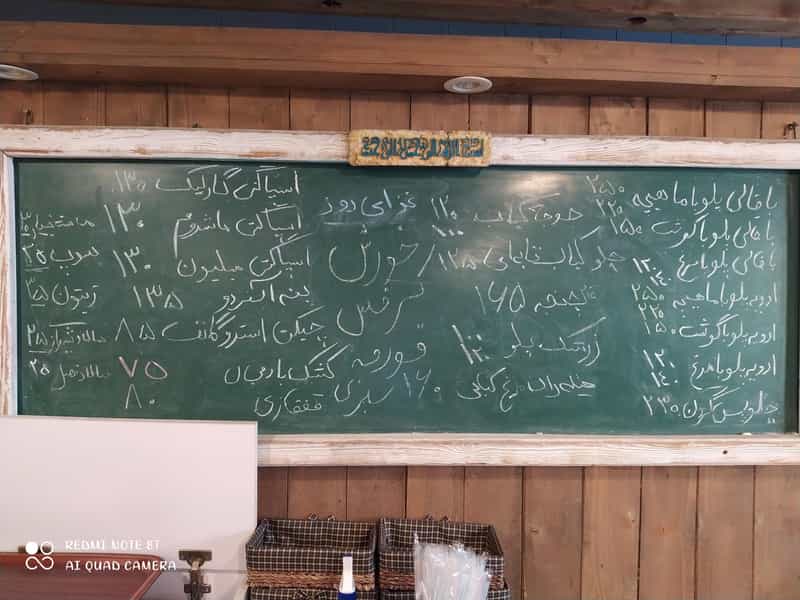 بسم الله الرحمن الرحیم
باقالی پلو با ماهیچه ۲۵۰
۲۲۰
باقالی پلو با گوشت ۱۵۰
باقالی پلو با مرغ ۱۲۰
۱۴۰
ادویه پلو با ماهیچه ۲۵۰
۲۲۰
ادویه پلو با گوشت ۱۵۰
ادویه پلو با مرغ ۱۲۰
۱۴۰
۲۳۰
جوجه کباب ۱۲۰
۱۰۰
چلو کباب تابه‌ای ۱۲۵
۱۶۵
زرشک پلو
غذای روز
خورش
کرفس
قورمه
سبزی
۱۶۰
اسپاگتی گارلیک ۱۳۰
اسپاگتی ماشروم ۱۳۰
اسپاگتی میلیون ۱۳۰
پنه آلفردو ۱۳۵
چیکن استروگانف ۸۵
کشک بادمجان ۷۵
۸۰
ماست خیار ۳۰
سوپ ۲۵
زیتون ۳۵
سالاد شیرازی ۲۵
سالاد فصل ۲۵
REDMI NOTE 8T
AI QUAD CAMERA